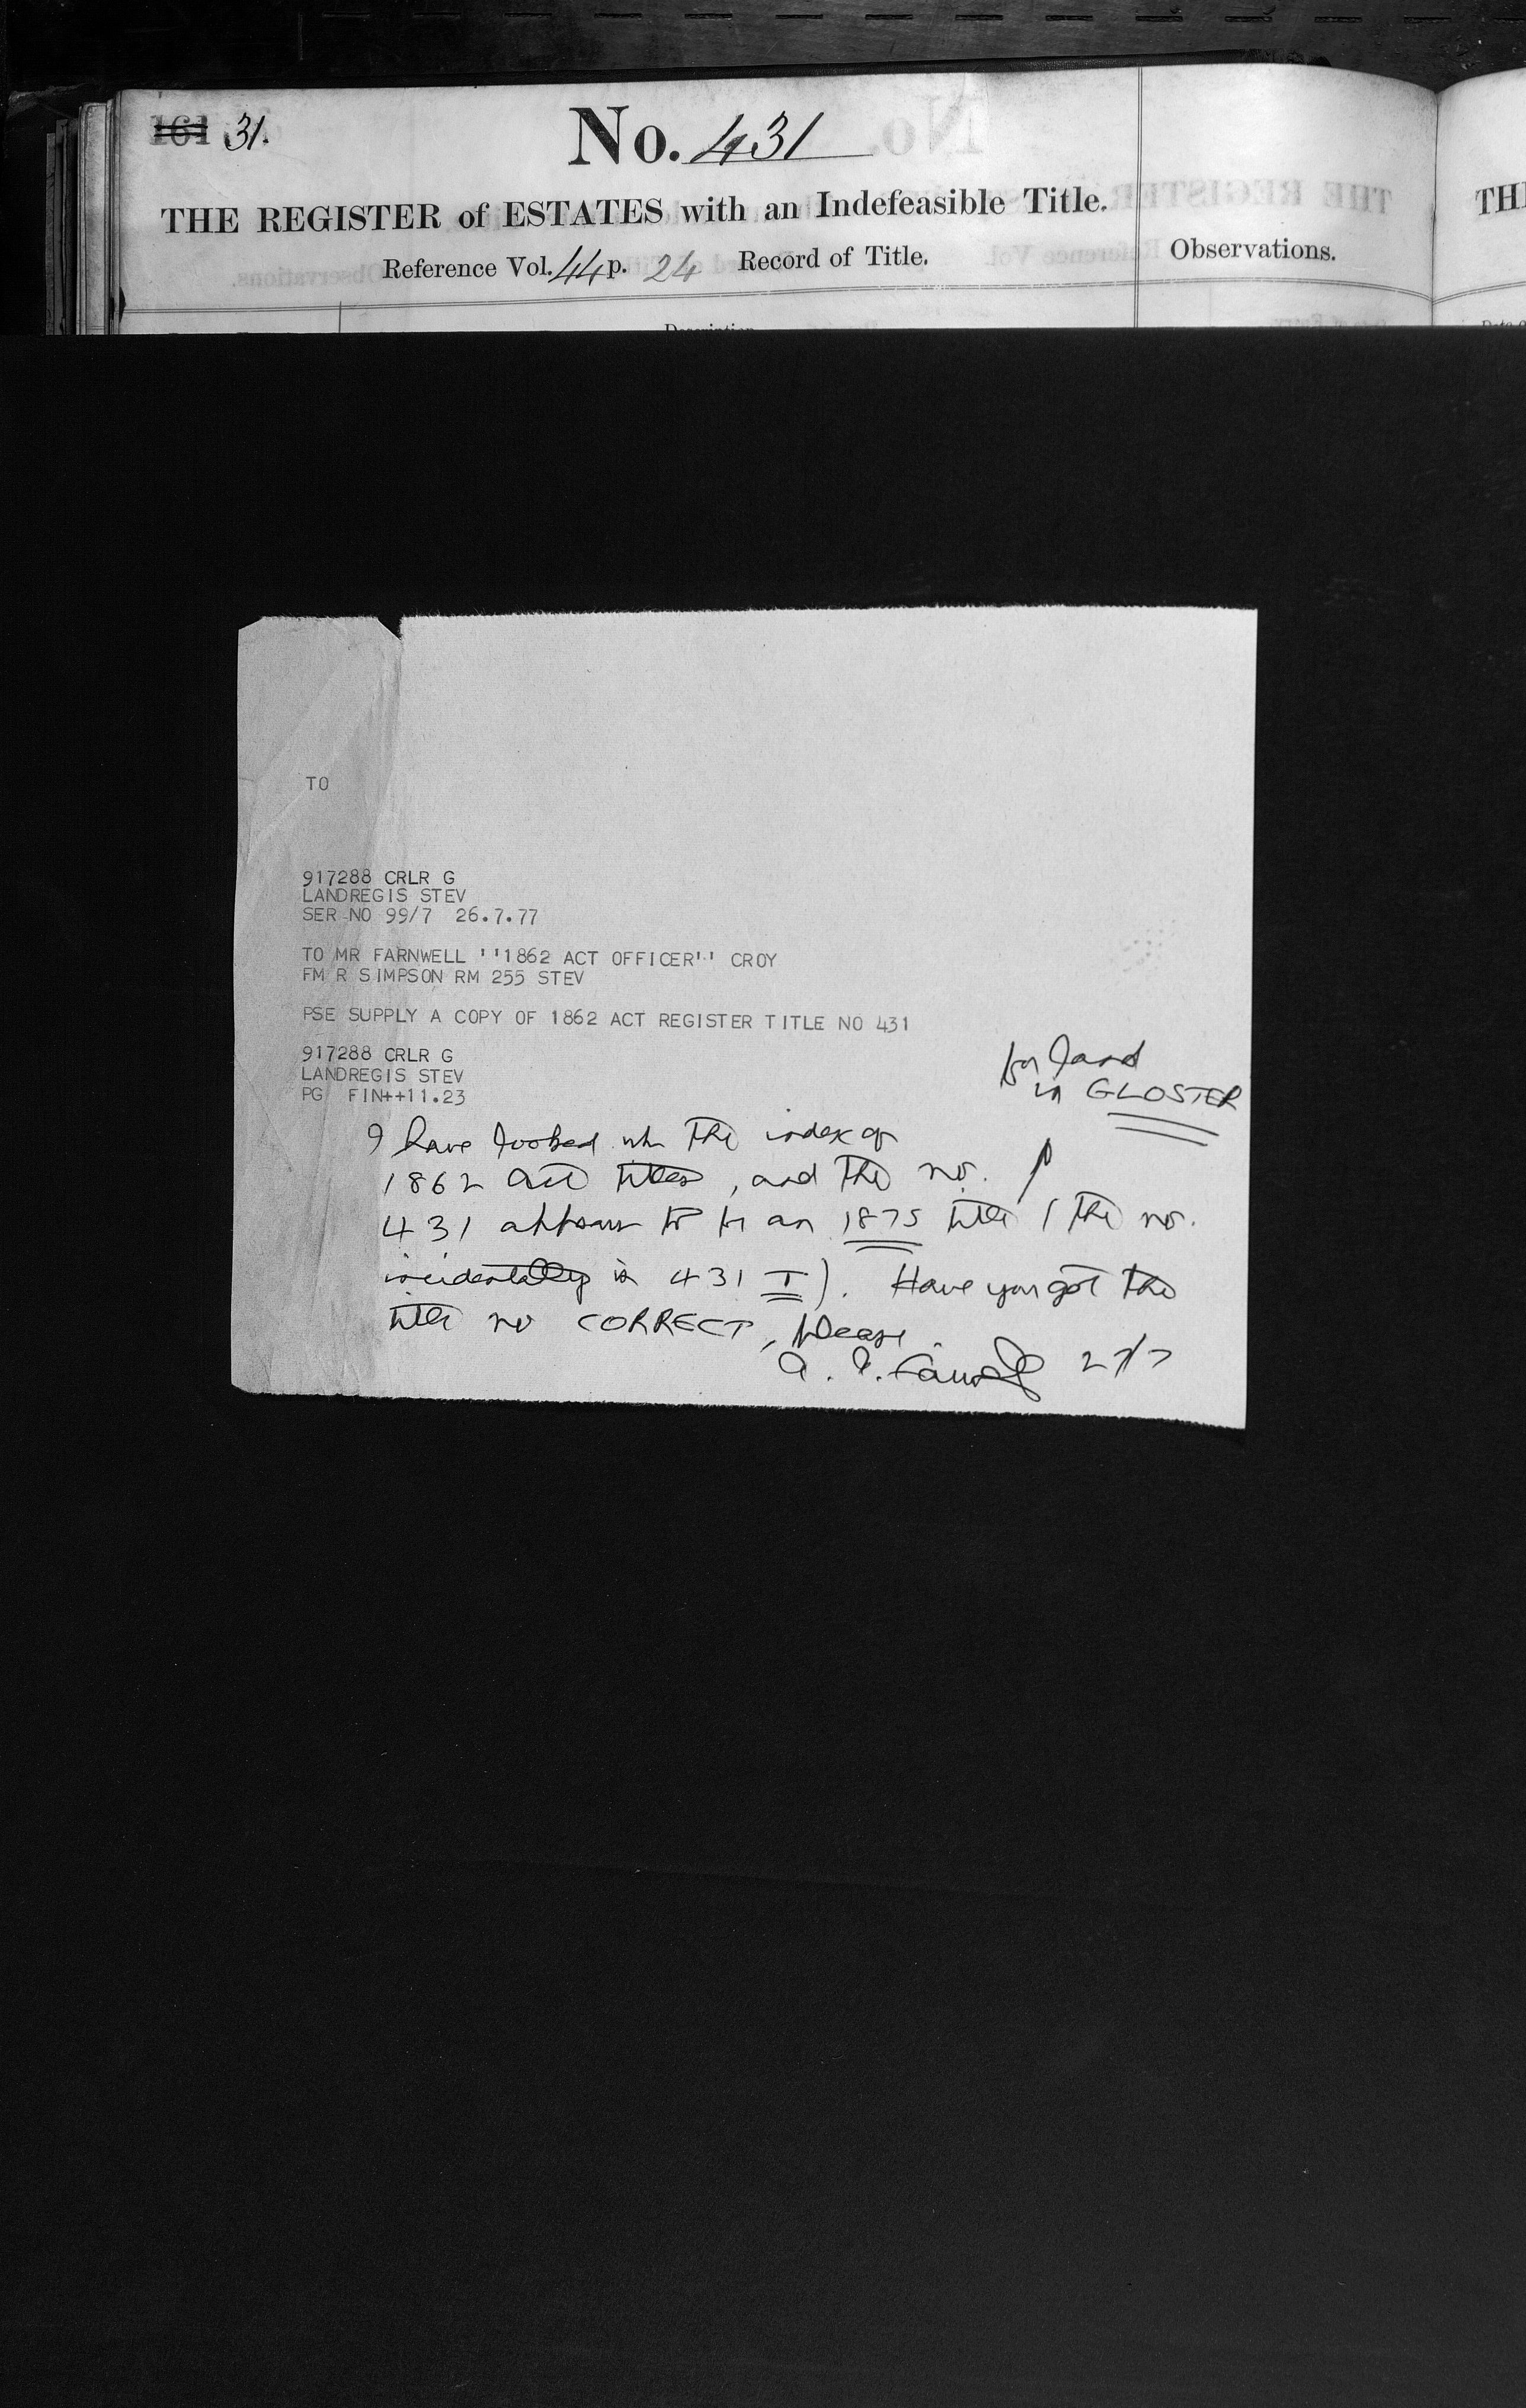 161 31.
No. 431
THE REGISTER of ESTATES with an Indefeasible Title.
Reference Vol. 44 p. 24 Record of Title.
Observations.
Description
TH
TO
917288 CRLR G
LANDREGIS STEV
SER NO 99/7 26.7.77
TO MR FARNWELL ''1862 ACT OFFICER'' CROY
FM R SIMPSON RM 255 STEV
PSE SUPPLY A COPY OF 1862 ACT REGISTER TITLE NO 431
917288 CRLR G
LANDREGIS STEV
PG FIN++11.23
for land
in GLOSTER
I have looked in the index of
1862 Act titles, and the no.
431 appears to be an 1875 title (the no.
incidentally is 431 I). Have you got the
title no CORRECT, please
27/7